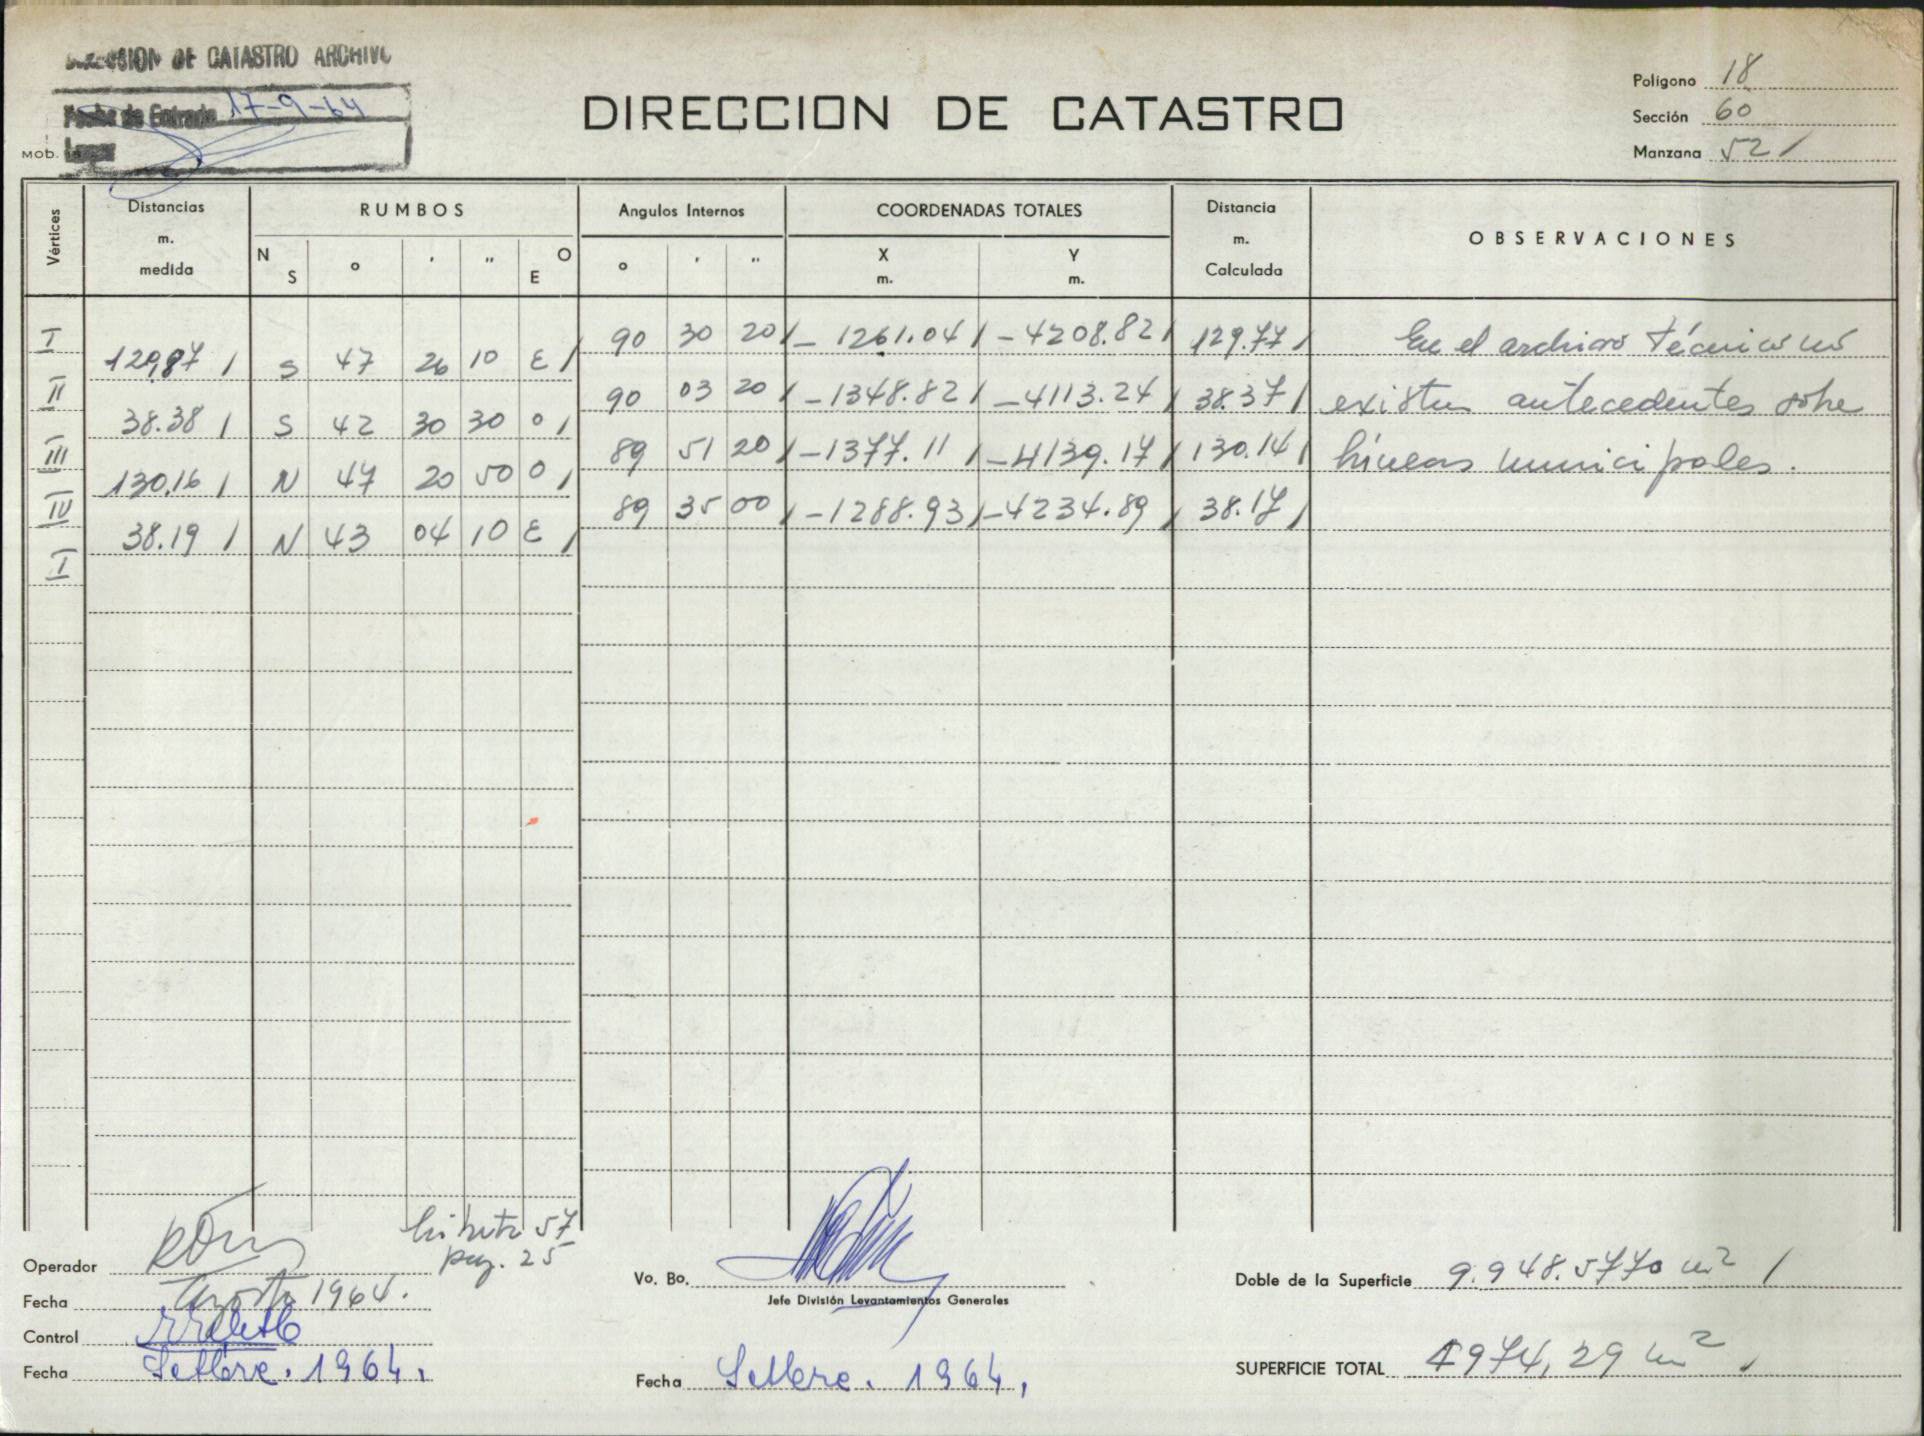 DIRECCION DE CATASTRO ARCHIVO
Fecha de Entrada 17-9-64
Legajo
MOB.
DIRECCION DE CATASTRO
Polígono 18
Sección 60
Manzana 52 /
Vértices
Distancias m. medida
RUMBOS
N S ° ' " O E
Angulos Internos
° ' "
COORDENADAS TOTALES
X m. Y m.
Distancia m. Calculada
OBSERVACIONES
I 90 30 20 / - 1261.04 / - 4208.82 / 129.77 / En el archivo técnico no
129,87 / S 47 26 10 E /
II 90 03 20 / - 1348.82 / - 4113.24 / 38.37 / existen antecedentes sobre
38.38 / S 42 30 30 O /
III 89 51 20 / - 1377.11 / - 4139.17 / 130.14 / líneas municipales.
130,16 / N 47 20 50 O /
IV 89 35 00 / - 1288.93 / - 4234.89 / 38.17 /
38.19 / N 43 04 10 E /
I
Libreta 57
pag. 25
Operador
Fecha Agosto 1964.
Control
Fecha Setbre. 1964.
Vo. Bo.
Jefe División Levantamientos Generales
Fecha Setbre. 1964.
Doble de la Superficie 9.948.5770 m2 /
SUPERFICIE TOTAL 4974,29 m2 /